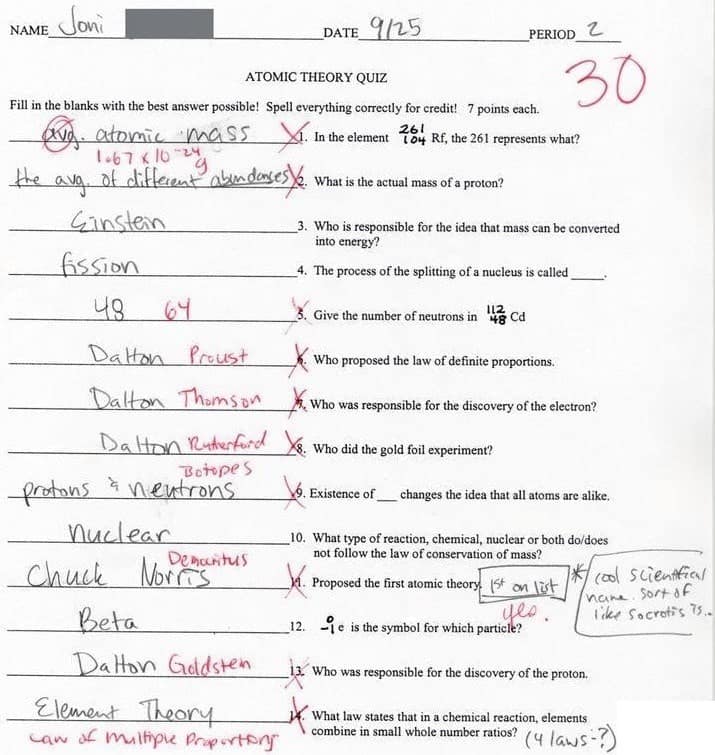 NAME Joni
DATE 9/25
PERIOD 2
ATOMIC THEORY QUIZ
30
Fill in the blanks with the best answer possible! Spell everything correctly for credit! 7 points each.
avg. atomic mass 1. In the element 261 104 Rf, the 261 represents what?
1.67 x 10 -24 g
the avg. of different abundonses 2. What is the actual mass of a proton?
Einstein 3. Who is responsible for the idea that mass can be converted
into energy?
fission 4. The process of the splitting of a nucleus is called _____.
48 64 5. Give the number of neutrons in 112 48 Cd
Dalton Proust 6. Who proposed the law of definite proportions.
Dalton Thomson 7. Who was responsible for the discovery of the electron?
Dalton Rutherford 8. Who did the gold foil experiment?
Isotopes
protons & neutrons 9. Existence of ___ changes the idea that all atoms are alike.
nuclear 10. What type of reaction, chemical, nuclear or both do/does
not follow the law of conservation of mass?
Democritus
Chuck Norris 11. Proposed the first atomic theory. 1st on list
* cool scientifical
name. sort of
like Socrotis is..
yes.
Beta 12. 0 -1 e is the symbol for which particle?
Dalton Goldstein 13. Who was responsible for the discovery of the proton.
Element Theory 14. What law states that in a chemical reaction, elements
combine in small whole number ratios? (4 laws-?)
Law of multiple Proportions